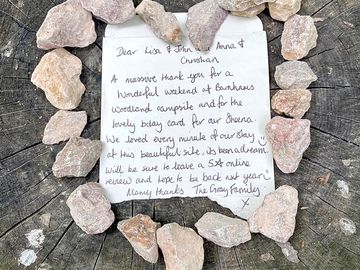 Dear Lisa & John and Anna &
Christian
A massive thank you for a
Wonderful weekend at Barnhaws
Woodland campsite and for the
lovely bday card for our Sheena.
We loved every minute of our stay
at this beautiful site, its been a dream.
Will be sure to leave a 5* online
review and hope to be back next year
Many thanks The Gray Family
x